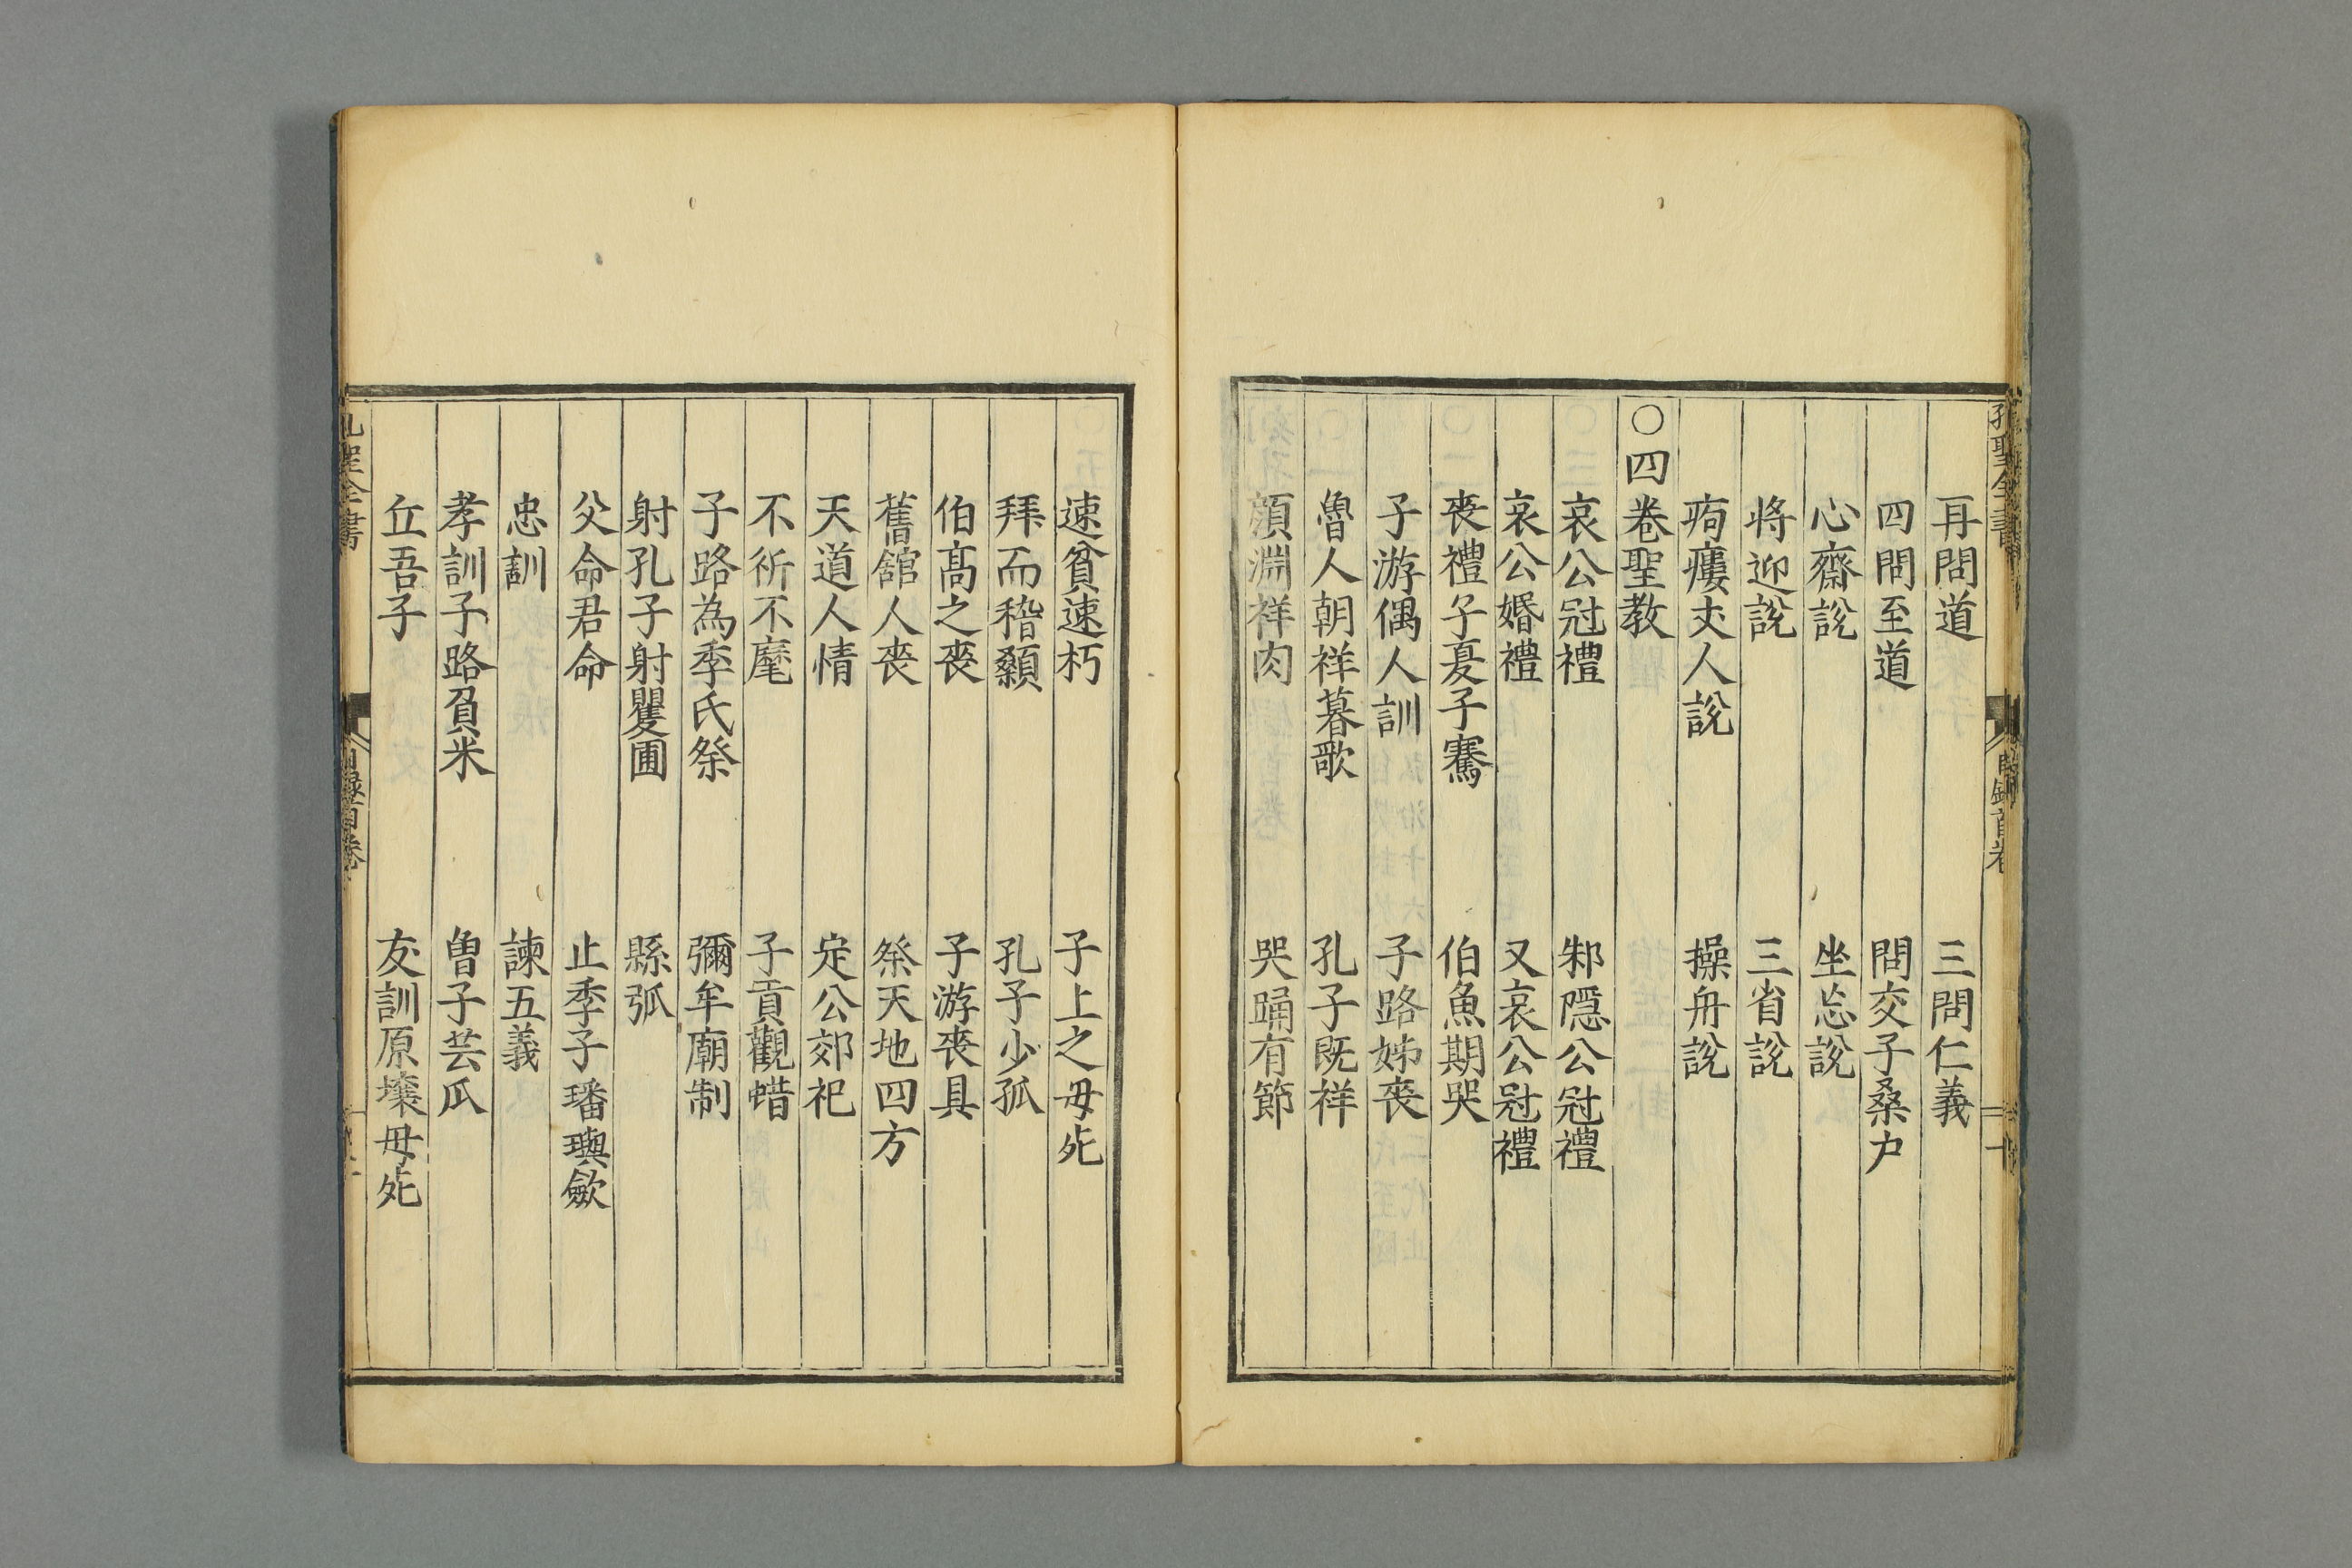 孔聖全書
目錄首卷
十
再問道　三問仁義
四問至道　問交子桑户
心齋說　坐忘說
將迎說　三省說
痀瘻丈人說　操舟說
〇四卷聖教
哀公冠禮　邾隱公冠禮
哀公婚禮　又哀公冠禮
喪禮子憂子騫　伯魚期哭
子游偶人訓　子路姊喪
魯人朝祥暮歌　孔子既祥
顏淵祥肉　哭踊有節
速貧速朽　子上之母死
拜而稽顙　孔子少孤
伯高之喪　子游喪具
舊舘人喪　祭天地四方
天道人情　定公郊祀
不祈不麾　子貢觀蜡
子路為季氏祭　彌牟廟制
射孔子射矍圃　縣弧
父命君命　止季子璠璵歛
忠訓　諫五義
孝訓子路負米　曾子芸瓜
丘吾子　友訓原壤母死
孔聖全書
目錄首卷